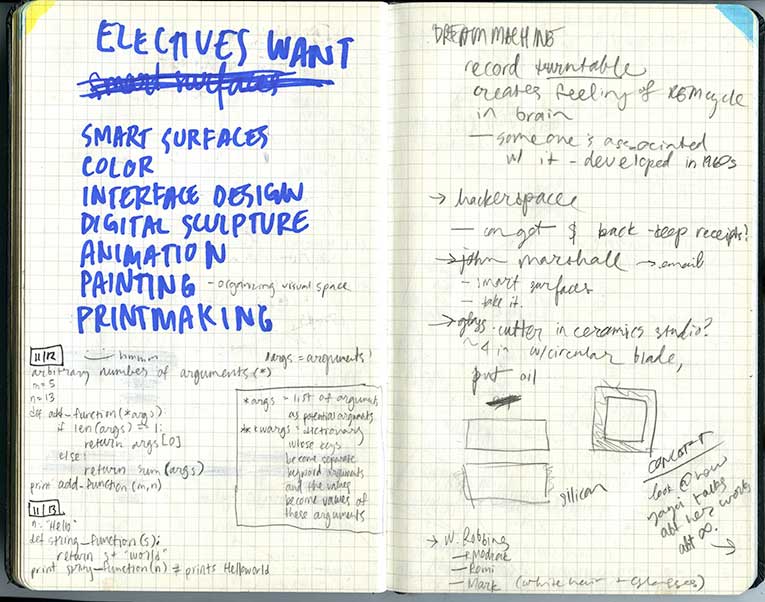 ELECTIVES WANT
smart surfaces
SMART SURFACES
COLOR
INTERFACE DESIGN
DIGITAL SCULPTURE
ANIMATION
PAINTING - organizing visual space
PRINTMAKING
11/12
hmmm
arbitrary number of arguments (*)
n=5
n=13
def add_function(*args)
if len(args) = 1:
return args[0]
else:
return sum(args)
print add_function(m,n)
*args = arguments!
*args = list of arguments
as potential arguments
**kwargs = dictionary
whose keys
become separate
keyword arguments
and the values
become values of
these arguments
11/13
n= "Hello"
def string_function(s):
return s + "world"
print string_function(n) # prints Helloworld
DREAM MACHINE
record turntable
creates feeling of REM cycle
in brain
- someone's associated
w/ it - developed in 1960s
→ hackerspace
- can get $ back - keep receipts?
→ john marshall → email
- smart surfaces
- take it.
→ glass-cutter in ceramics studio?
~ 4 in w/circular blade,
put oil
silicon
CONCEPT
look @ how
talks
abt her works
abt ∞.
→ W. Robbins
- Romi
- Mark (white hair + glasses)